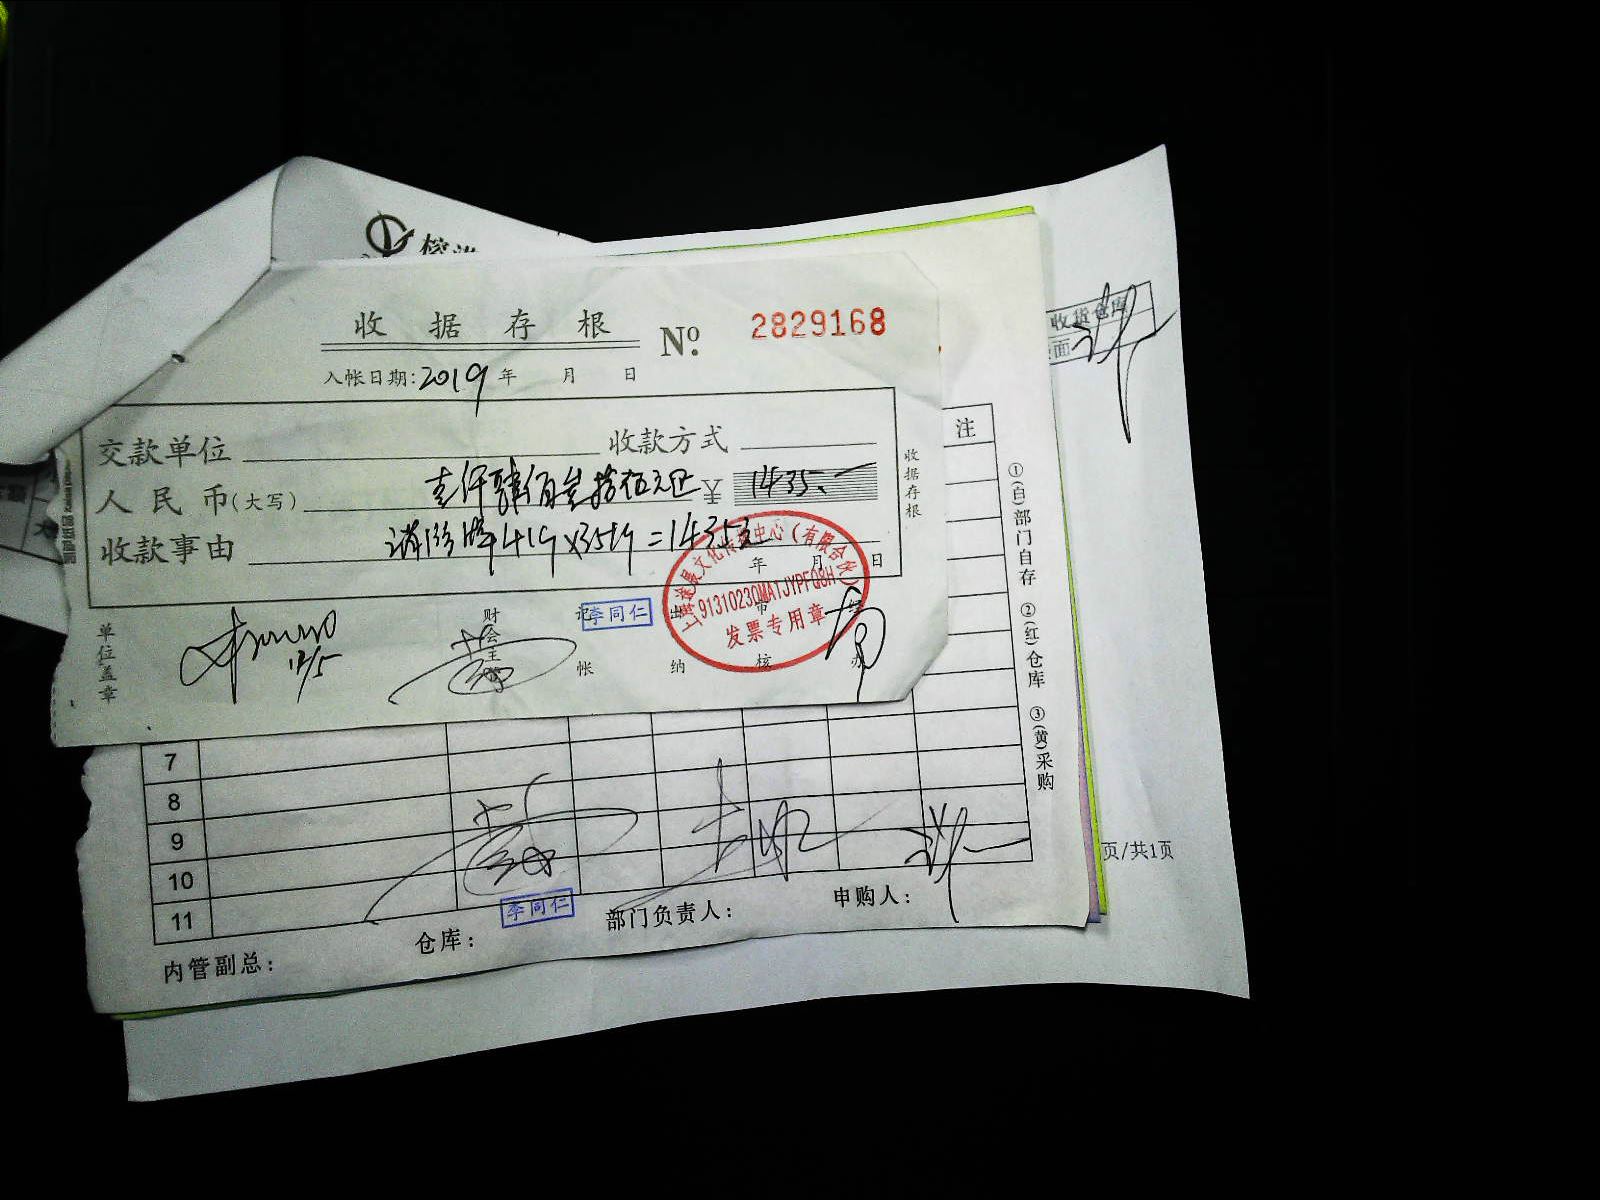 收据存根
No. 2829168
入帐日期:2019年 月 日
交款单位 收款方式
人民币(大写) 壹仟肆佰叁拾伍元正 ¥ 1435.—
收款事由 41个×35 =1435元
年 月 日
收据存根
单位盖章
12/5
财会主管
记帐
李同仁
出纳
审核
经办
文化传播中心(有限合伙)
发票专用章
收货仓库
注
①(白)部门自存 ②(红)仓库 ③(黄)采购
7
8
9
10
11
内管副总:
仓库:
李同仁
部门负责人:
申购人:
页/共1页